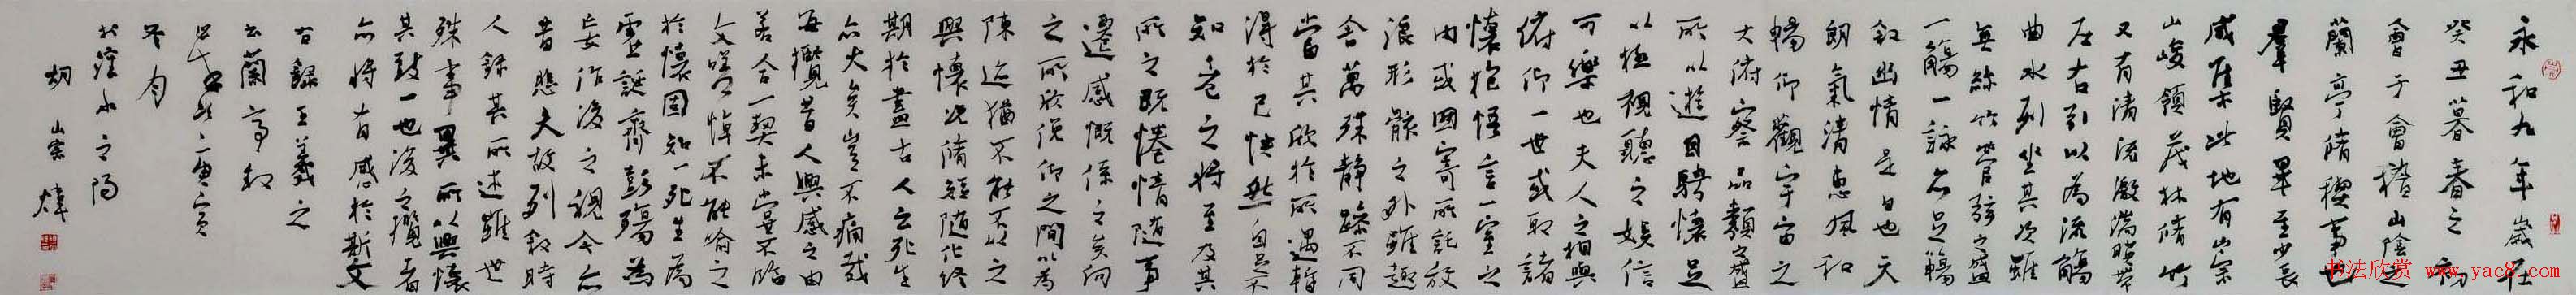 永和九年歲在
癸丑暮春之初
會于會稽山陰之
蘭亭脩稧事也
羣賢畢至少長
咸集此地有崇
山峻領茂林脩竹
又有清流激湍暎帶
左右引以為流觴
曲水列坐其次雖
無絲竹管弦之盛
一觴一詠亦足暢
敘幽情是日也天
朗氣清惠風和
暢仰觀宇宙之
大俯察品類之盛
所以遊目騁懷足
以極視聽之娛信
可樂也夫人之相與
俯仰一世或取諸
懷抱悟言一室之
內或因寄所託放
浪形骸之外雖趣
舍萬殊靜躁不同
當其欣於所遇暫
得於己快然自足不
知老之將至及其
所之既惓情隨事
遷感慨係之矣向
之所欣俛仰之間以為
陳迹猶不能不以之
興懷況脩短隨化終
期於盡古人云死生
亦大矣豈不痛哉
每攬昔人興感之由
若合一契未嘗不臨
文嗟悼不能喻之
於懷固知一死生為
虛誕齊彭殤為
妄作後之視今亦
昔悲夫故列敘時
人錄其所述雖世
殊事異所以興懷
其致一也後之攬者
亦將有感於斯文
右錄王羲之
蘭亭敘
庚寅
冬月
水之陽
胡崇煒
书法欣赏 www.yac8.com